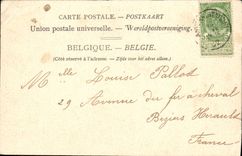 CARTE POSTALE. — POSTKAART
Union postale universelle. — Wereldpostvereeniging.
BELGIQUE. — BELGIE.
(Côté réservé à l'adresse. — Zijde voor het adres alleen.)
Mlle Louise Pallot
29 Avenue du fer à cheval
Beziers Herault
France